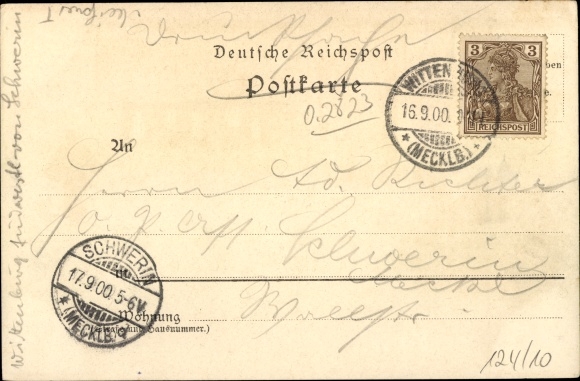 Drucksache
Deutsche Reichspost
Postkarte
3 3
REICHSPOST
WITTENBURG
16.9.00.
* (MECKLB.) *
0.2823
An
Herrn Ad. Richter
Schwerin
SCHWERIN
17.9.00.5-6V.
* (MECKLB.) *
in
Wohnung
(Straße und Hausnummer.)
ben
e.
Wittenburg südwestl. von Schwerin
124/10